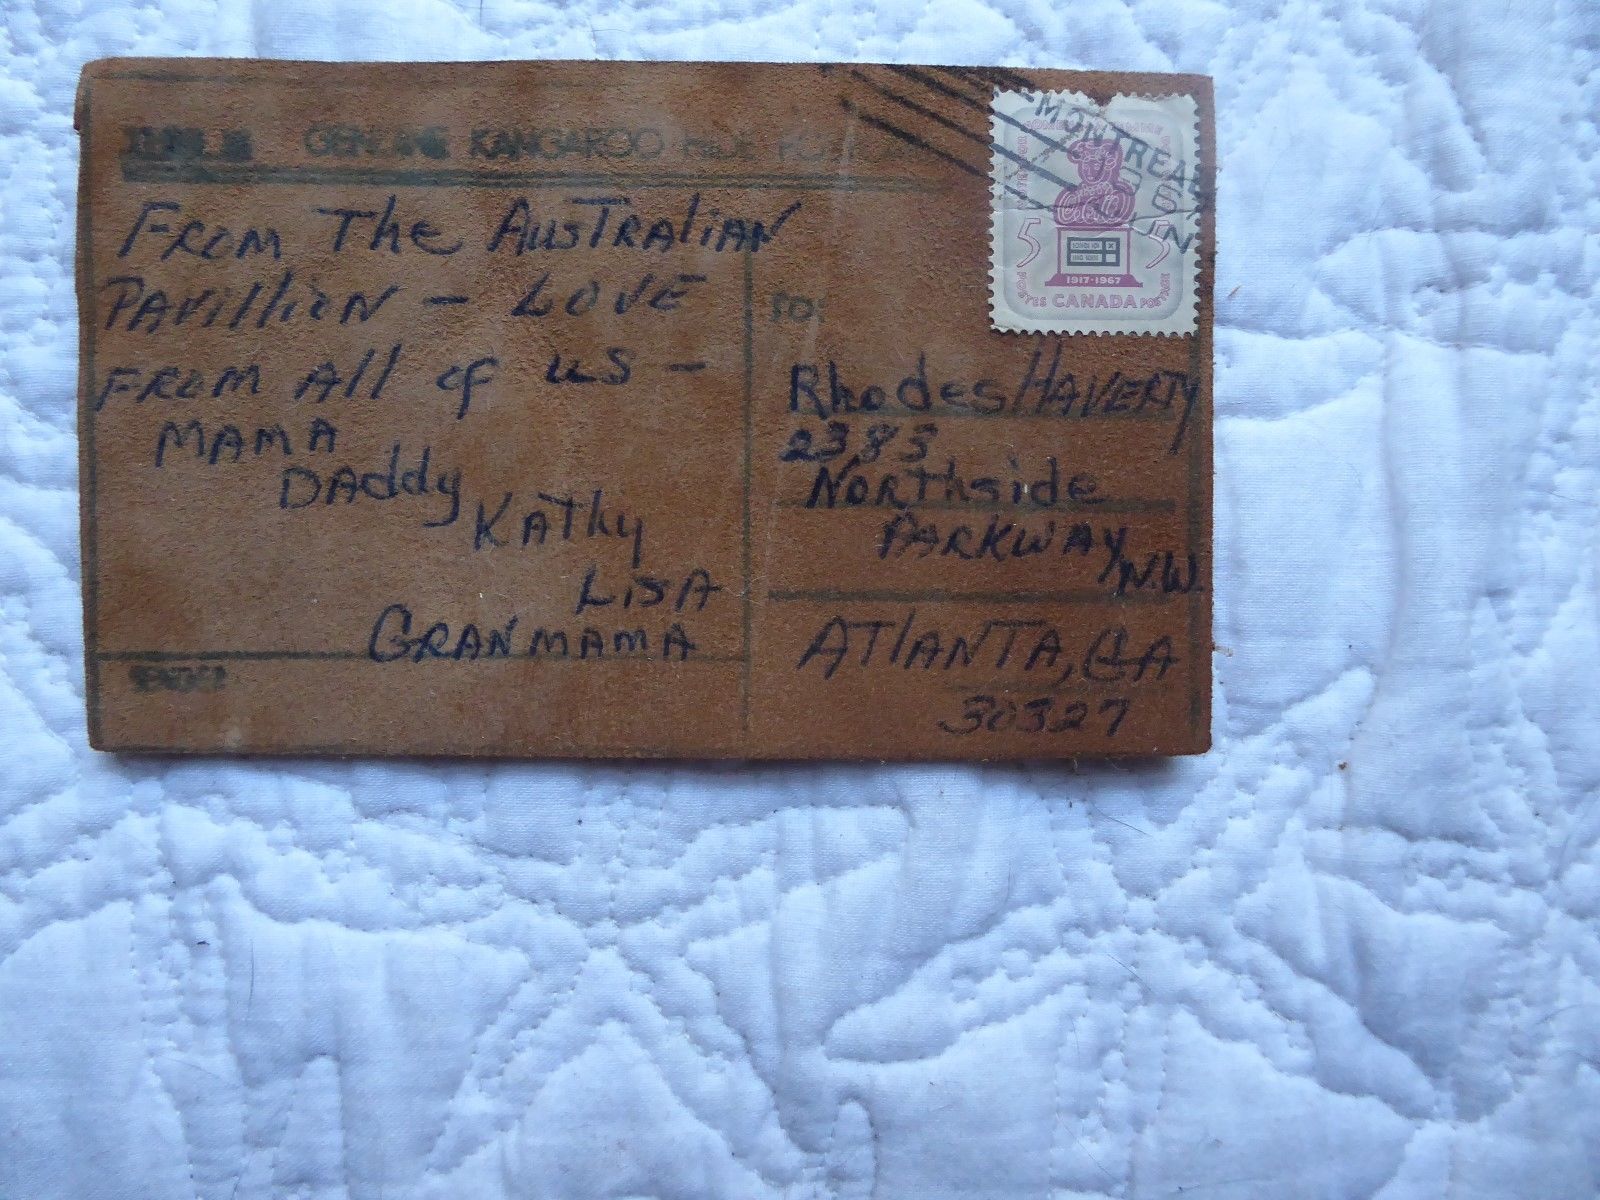 GENUINE KANGAROO HIDE
FROM The AUSTRALIAN
PAVILLION - LOVE
FROM All of US -
MAMA
DADDY
KATHY
LISA
GRANMAMA
TO:
Rhodes HAVERTY
2383
NORThside
PARKWAY
N.W.
ATLANTA, GA
30327
MONTREAL
5 5
1917-1967
POSTES CANADA POSTAGE